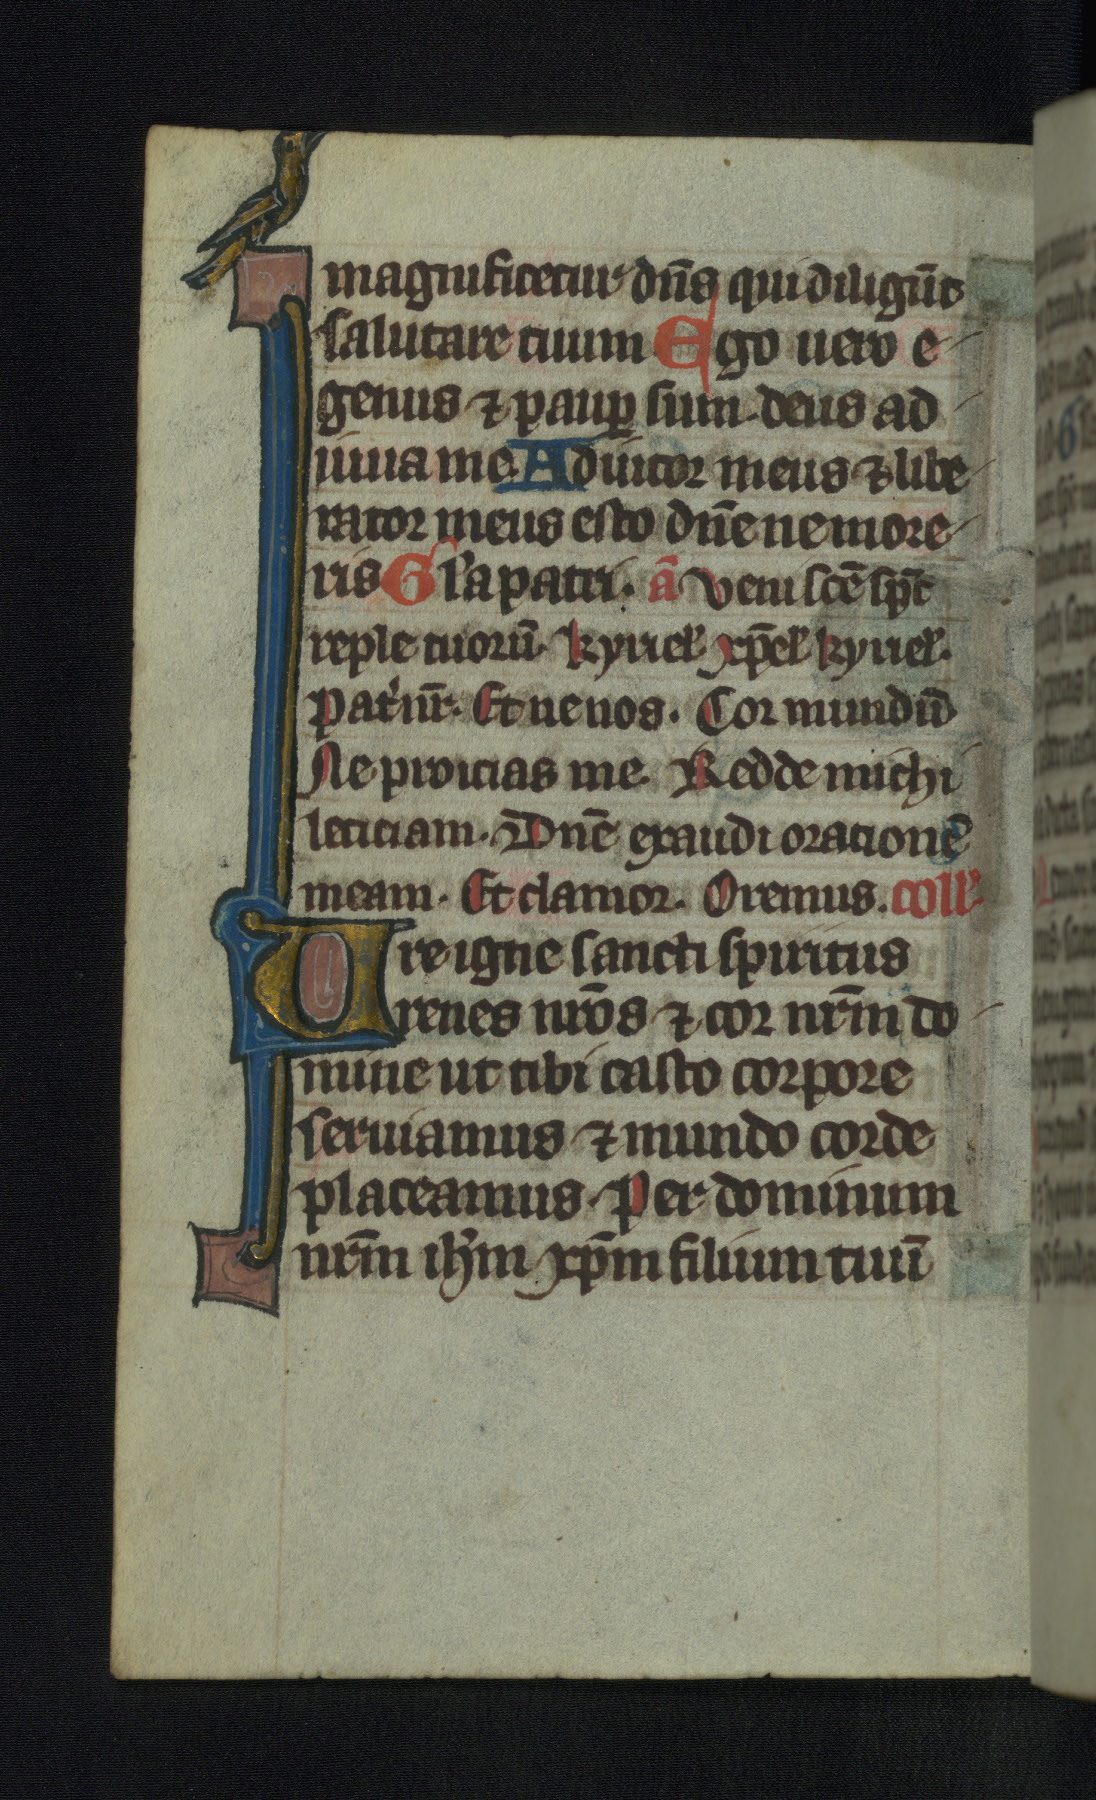 magnificetur dn̄s qui diligūt
salutare tuum Ego uero e
genus ⁊ paup̲ sum. deus ad
iuua me. Adiutor meus ⁊ libe
rator meus esto dn̄e ne more
ris Gl'a patri. ā Veni sc̄e sp̄c
reple tuorū. kyriel' xp̄el' kyriel'.
Pat' nr̄. Et ne nos. Cor mundū
Ne proicias me. Redde michi
leticiam. Dn̄e exaudi orationē
meam. Et clamor. Oremus. coll'.
Ure igne sancti spiritus
renes nr̄os ⁊ cor nr̄m do
mine ut tibi casto corpore
seruiamus ⁊ mundo corde
placeamus. Per dominum
nr̄m ih'm xp̄m filium tuū